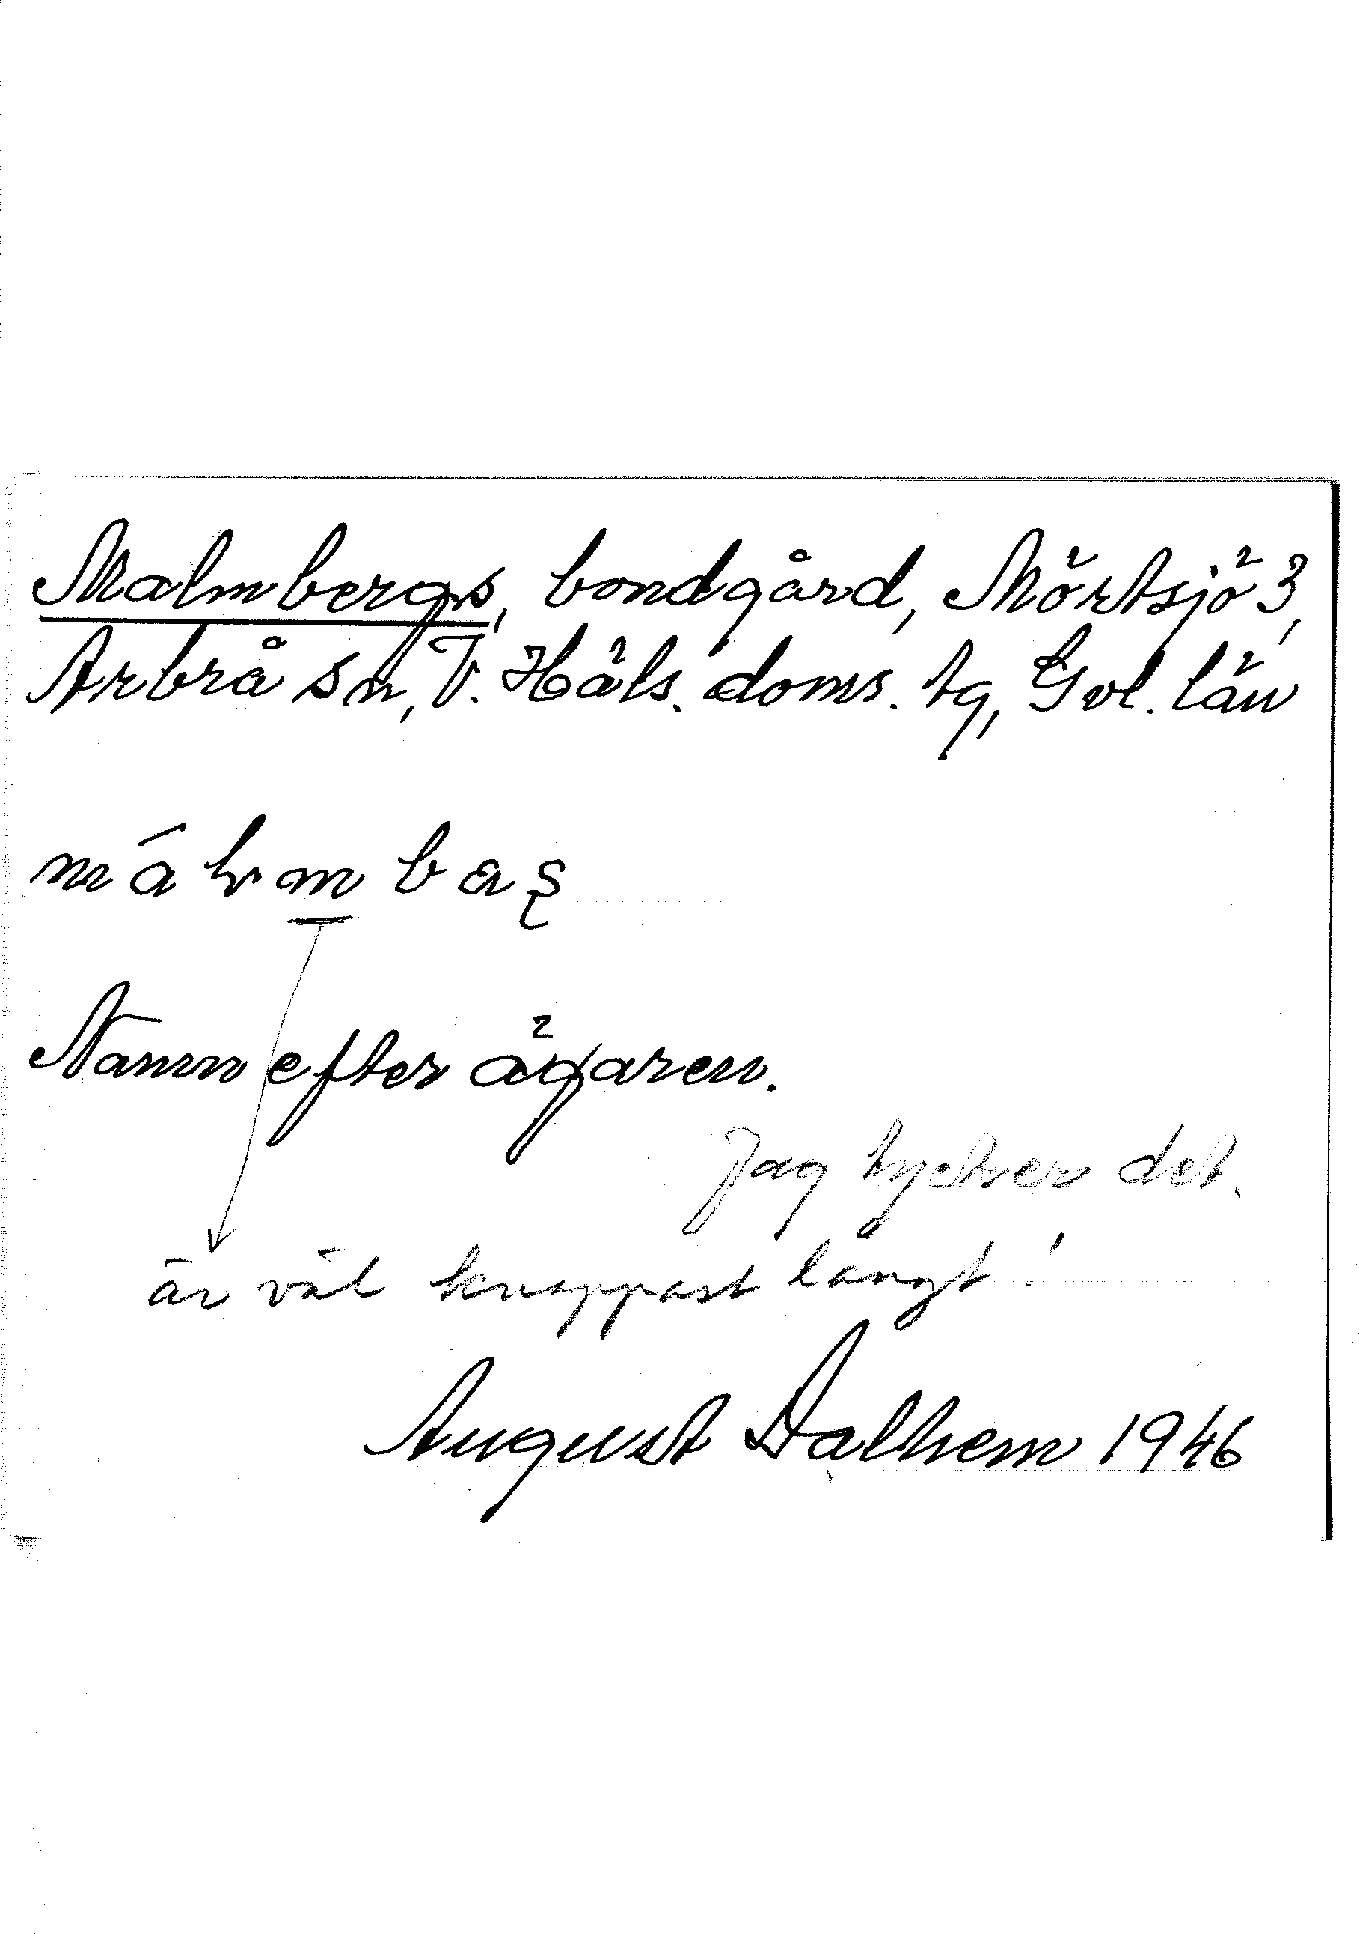 Malmbergs, bondgård, Mörtsjö 3,
Arbrå sn, V. Häls. doms. tg, Gvl. län
Namn efter ägaren.
Jag tycker det.
är väl knappast långt!
August Dalhem 1946